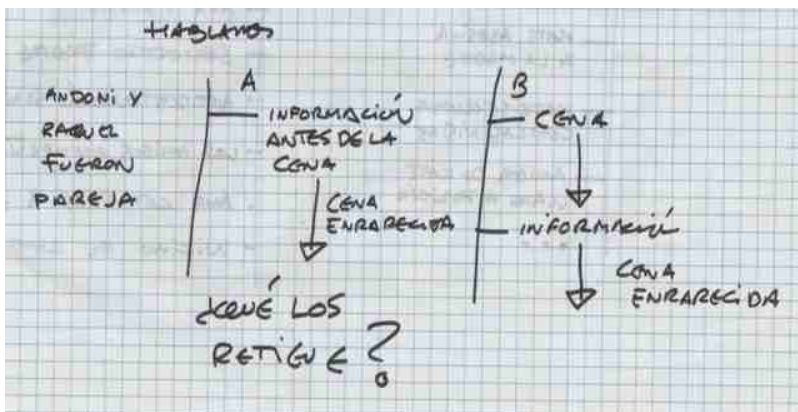 HABLAMOS
ANDONI Y
RAQUEL
FUERON
PAREJA
A
INFORMACIÓN
ANTES DE LA
CENA
CENA
ENRARECIDA
B
CENA
INFORMACIÓN
CENA
ENRARECIDA
¿QUÉ LOS
RETIENE?